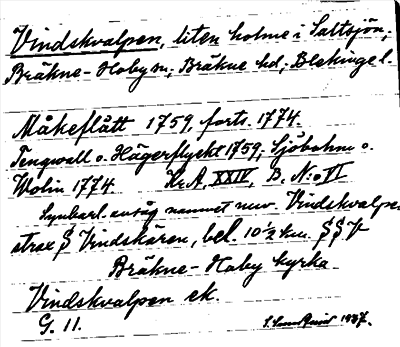 Vindskvalpen, liten holme i Saltsjön,
Bräkne-Hoby sn, Bräkne hd, Blekinge l.
Måkeflått 1759, forts. 1774.
Tengwall o. Hägerflyckt 1759, Sjöbohm o.
Wolin 1774. Kr.A, XXIV, B. N:o VI
Synbarl. enväg namnet nuv. Vindskvalpen
strax S Vindskären, bel. 10 ½ km. SSV
Bräkne-Hoby kyrka
Vindskvalpen ek.
G. 11. 1937.